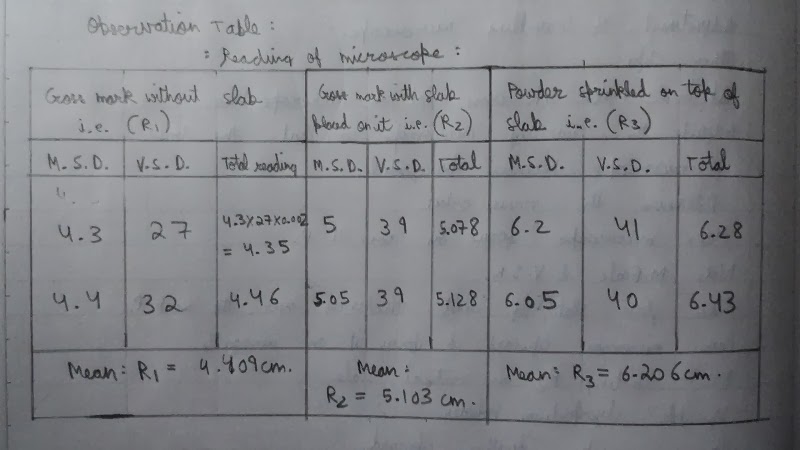 Observation Table:
: Reading of microscope:
Cross mark without slab
i.e. (R1)
Cross mark with slab
placed on it i.e. (R2)
Powder sprinkled on top of
slab i.e. (R3)
M.S.D. V.S.D. Total reading M.S.D. V.S.D. Total M.S.D. V.S.D. Total
4.3 27 4.3×27×0.002
= 4.35
5 39 5.078 6.2 41 6.28
4.4 32 4.46 5.05 39 5.128 6.05 40 6.43
Mean: R1 = 4.409cm.
Mean:
R2 = 5.103 cm.
Mean: R3 = 6.206cm.